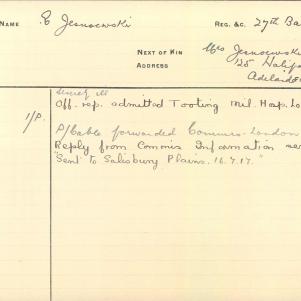 NAME E Jesnoewski REG. &C. 27th Ba
NEXT OF KIN Mrs Jesnoewski
ADDRESS 125 Halifa
Adelaide
ill
1/P. Off. rep. admitted Tooting Mil. Hosp. Lo
P/Cable forwarded Commrs. London
Reply from Commis Information
"Sent to Salisbury Plains. 16.7.17."